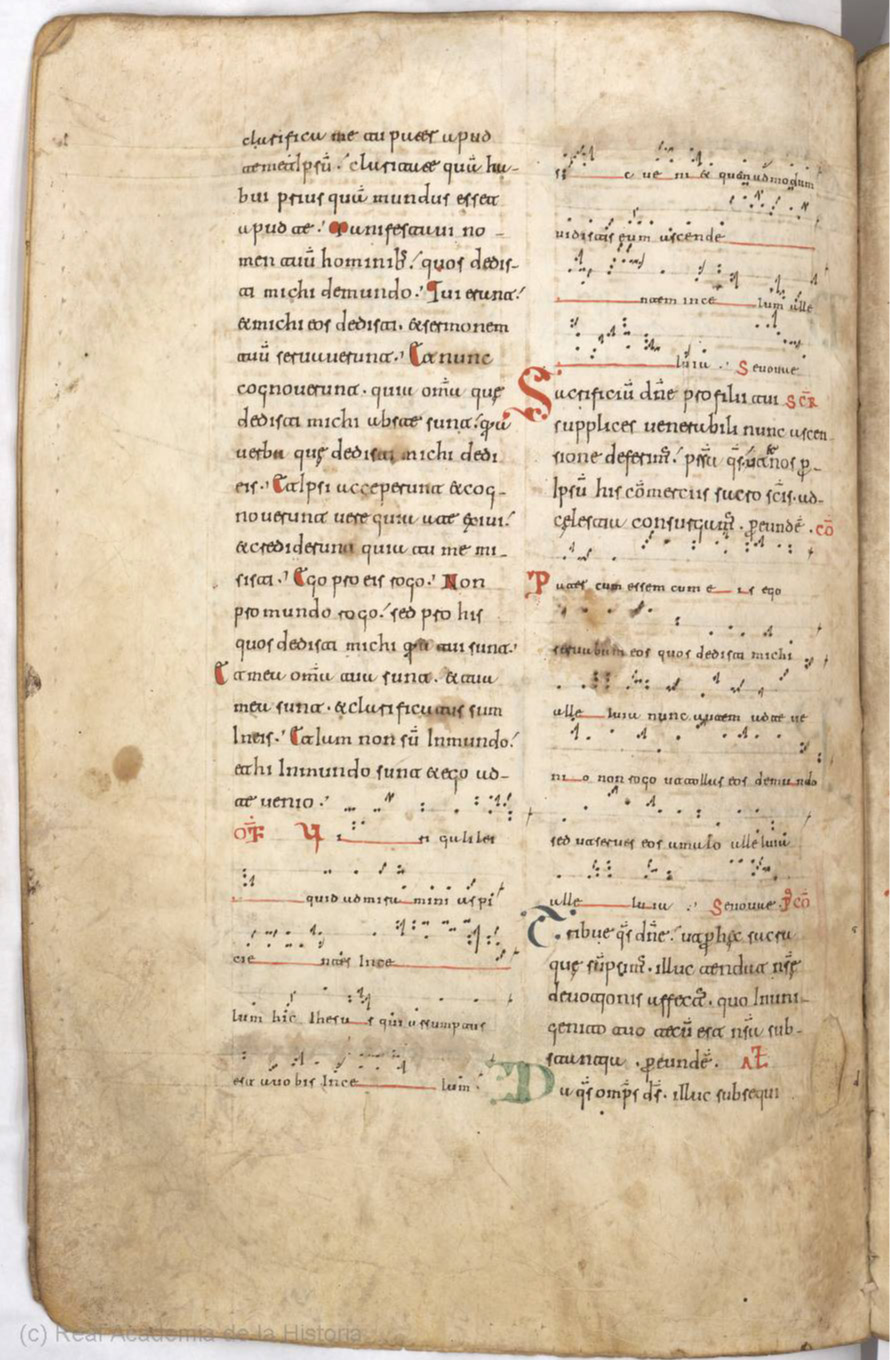 clarifica me tu pater apud
temetipsū. claritate quā ha-
bui prius quā mundus esset
apud te. Manifestaui no-
men tuū hominib; quos dedis-
ti michi demundo. Tui erant.
& michi eos dedisti. & sermonem
tuū seruauerunt. Et nunc
cognouerunt. quia om̄a que
dedisti michi abste sunt. quia
uerba que dedisti michi dedi
eis. Et ipsi acceperunt & cog-
nouerunt uere quia a te exiui.
& crediderunt quia tu me mi-
sisti. Ego pro eis rogo. Non
pro mundo rogo. sed pro his
quos dedisti michi quia tui sunt.
Et mea om̄a tua sunt. & tua
mea sunt. & clarificatus sum
Ineis. Et iam non sū Inmundo.
et hi Inmundo sunt & ego ad-
te uenio.
OF U i ri galilei
quid admira mini aspi
cie ntes Ince
lum hic Ihesu s qui assumptus
est auobis Ince lum
si c ue ni & quēn ad modum
uidistis eum ascende
ntem ince lum alle
luia. Seuouae
Sacrificiū dn̄e pro filii tui SCR
supplices uenerabili nunc ascen
sione deferim̄. pr̄sta q̄s. ut & nos p̄
Ipsū his cōmerciis sacro sc̄is. ad-
celestia consurgam̄. p̄eundē. cō
Pater cum essem cum e is ego
seruabam eos quos dedisti michi
alle luia nunc autem ad te ue
ni o non rogo ut tollas eos de mundo
sed ut serues eos amalo alleluia
alle luia. Seuouae. P̄ cō
Tribue q̄s dn̄e. ut p̄ hec sacra
que sūpsim̄. illuc tendat nr̄e
deuotionis affect̄. quo Inuni-
genito tuo tecū est nr̄a sub-
stantia. p̄eundē. AL
Da q̄s omp̄s ds̄. illuc subsequi
(c) Real Academia de la Historia